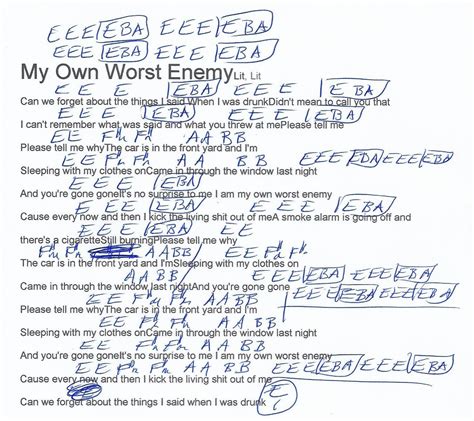 E E E EBA E E E EBA
E E E EBA E E E EBA
My Own Worst Enemy Lit, Lit
E E E EBA E E E EBA
Can we forget about the things I said When I was drunkDidn't mean to call you that
E E E EBA E E E EBA
I can't remember what was said and what you threw at mePlease tell me
E E F# F# A A B B
Please tell me whyThe car is in the front yard and I'm
E E F# F# A A B B E E E EBA E E E EBA
Sleeping with my clothes onCame in through the window last night
E E E EBA
And you're gone goneIt's no surprise to me I am my own worst enemy
E E E EBA E E E EBA
Cause every now and then I kick the living shit out of meA smoke alarm is going off and
E E E EBA E E
there's a cigaretteStill burningPlease tell me why
F# F# A A B B E E F# F#
The car is in the front yard and I'mSleeping with my clothes on
A A B B E E E EBA E E E EBA
Came in through the window last nightAnd you're gone gone
E E F# F# A A B B E E E EBA E E E EBA
Please tell me whyThe car is in the front yard and I'm
E E F# F# A A B B
Sleeping with my clothes onCame in through the window last night
E E F# F# A A B B
And you're gone goneIt's no surprise to me I am my own worst enemy
E E F# F# A A B B E E E EBA E E E EBA
Cause every now and then I kick the living shit out of me
E
Can we forget about the things I said when I was drunk
1